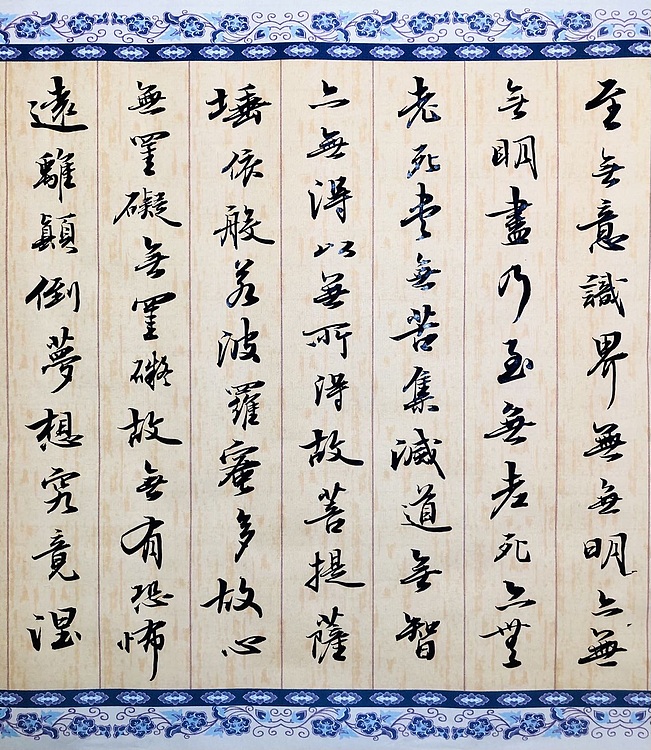 至無意識界無無明亦無
無明盡乃至無老死亦無
老死盡無苦集滅道無智
亦無得以無所得故菩提薩
埵依般若波羅蜜多故心
無罣礙無罣礙故無有恐怖
遠離顛倒夢想究竟涅